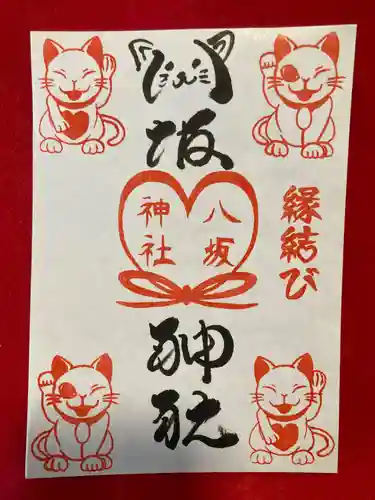 八坂神社
八坂
神社
縁結び